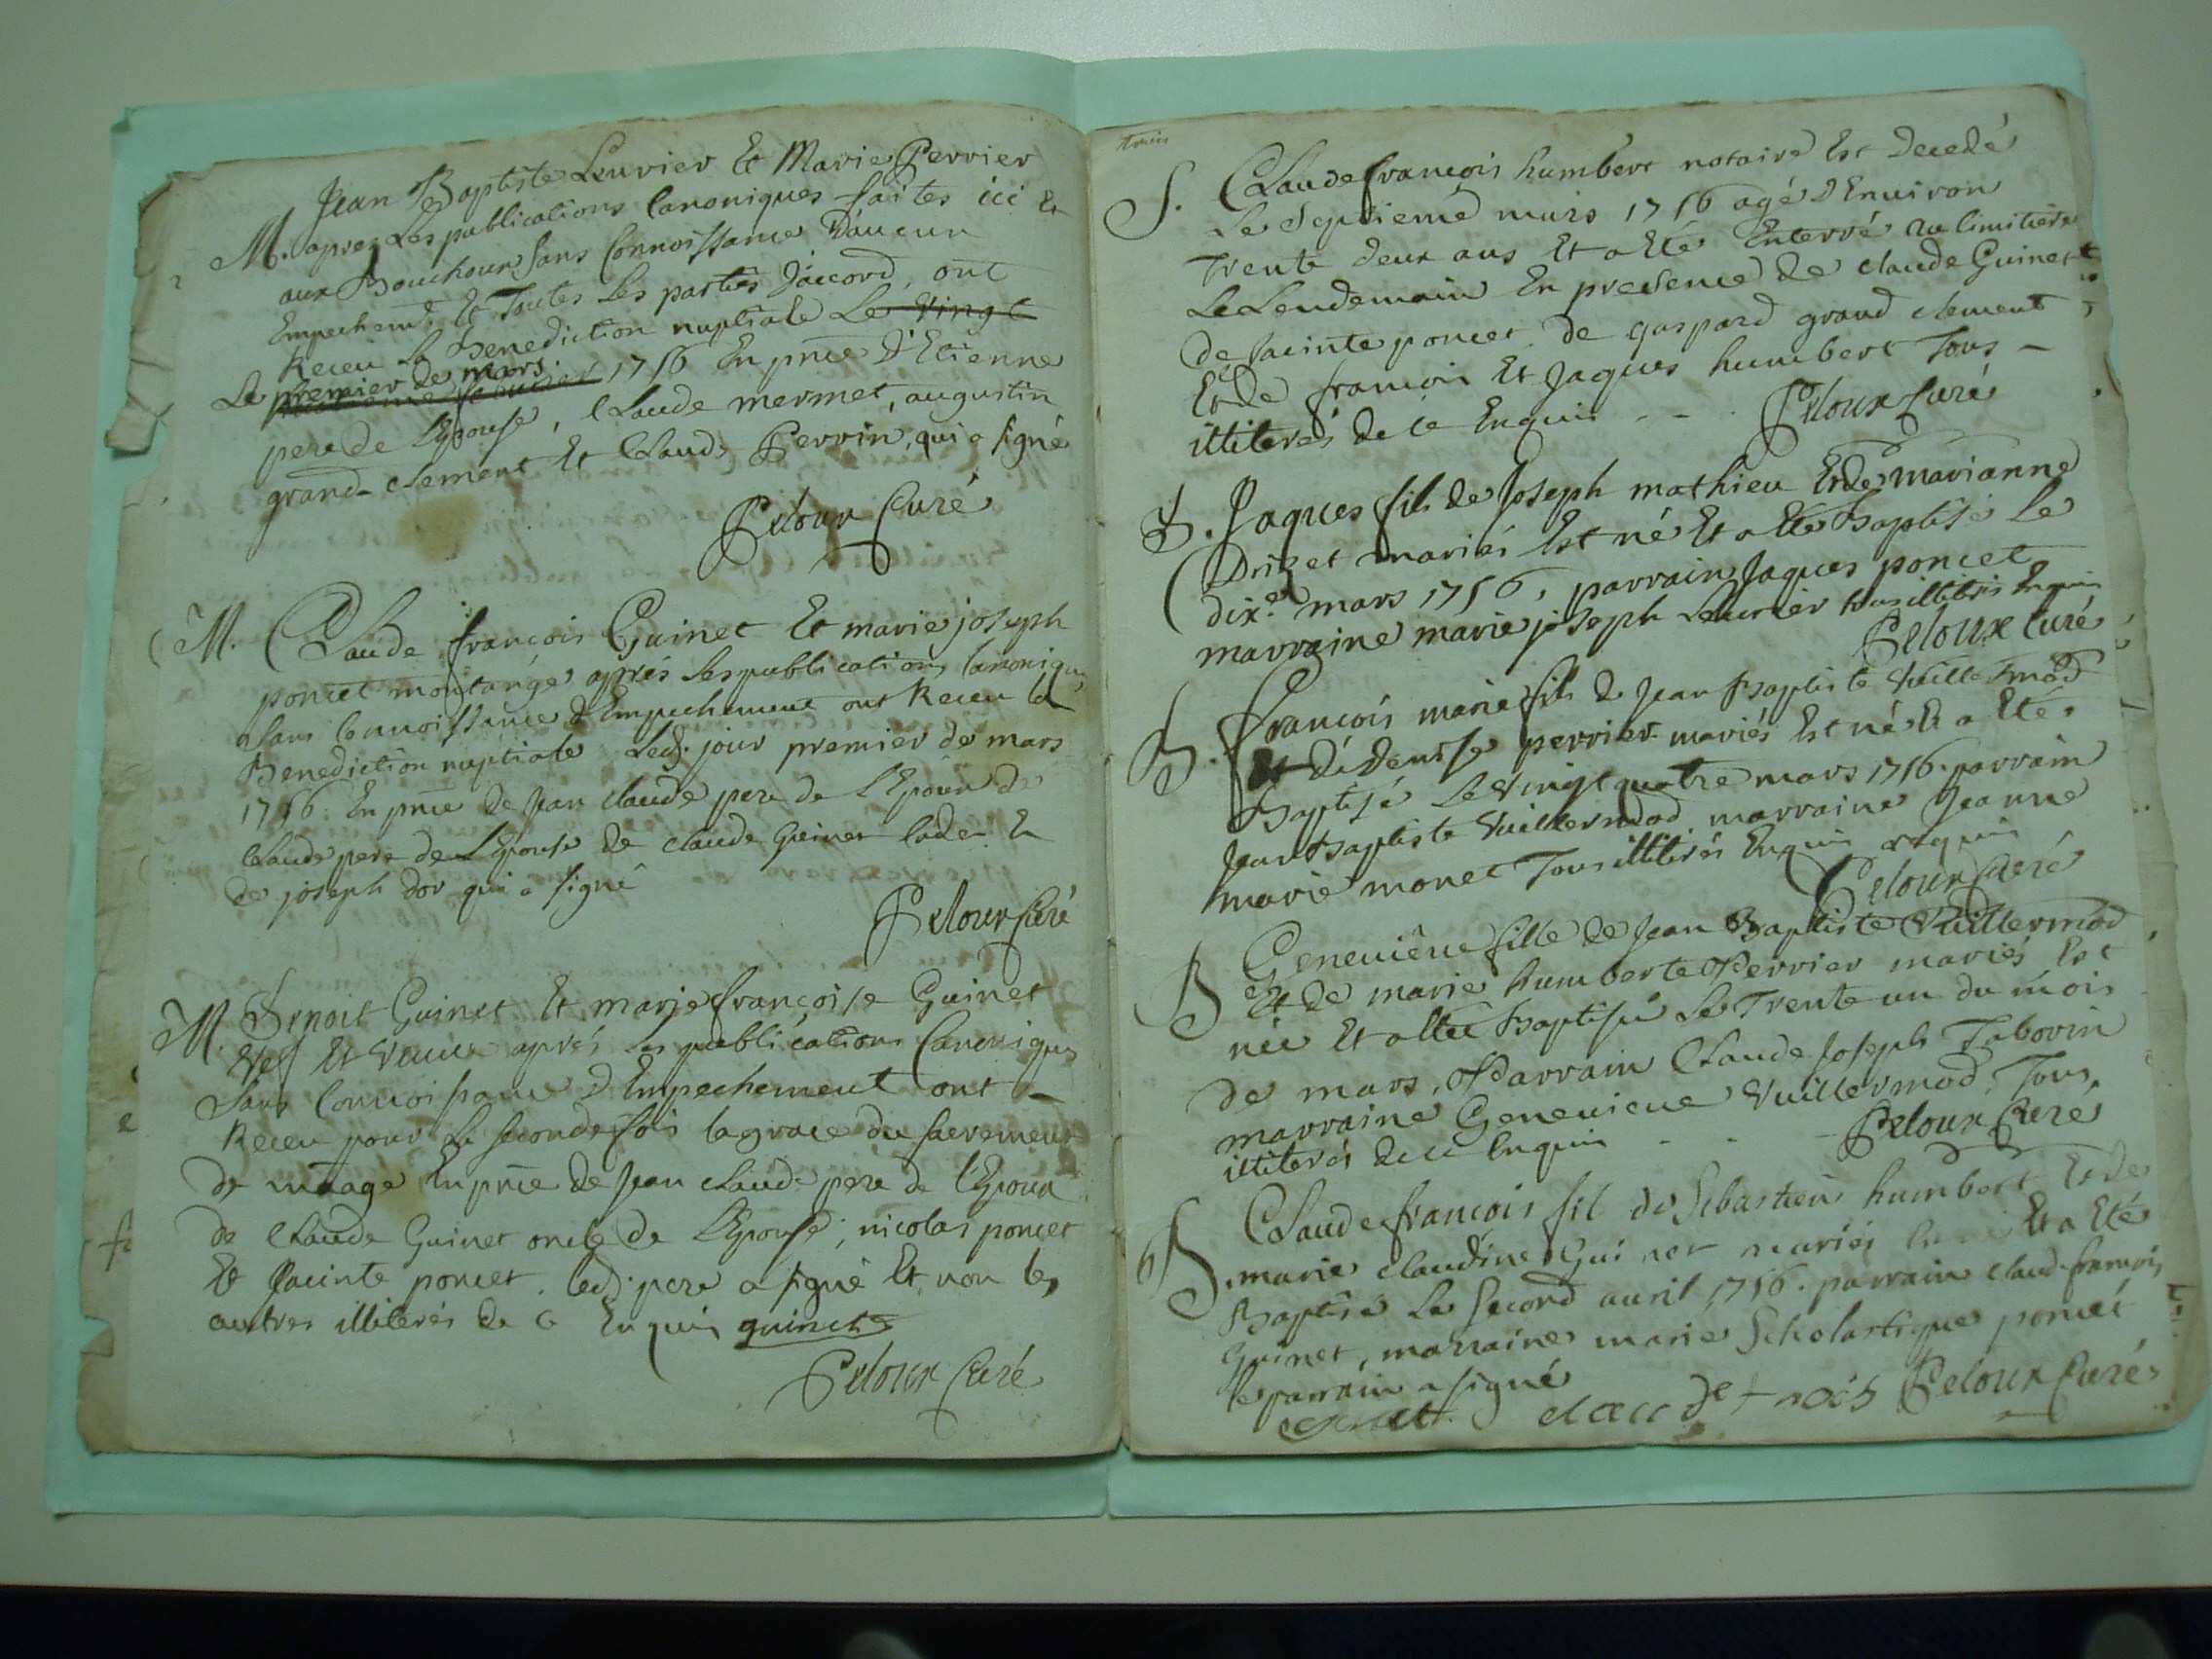 Jean Baptiste Lenvier Et Marie Perrier
M. apres Les publications Canoniques faites ici Et
aux Bouchoux Sans Connoissance D'aucun
Empechemt. Et Toutes Les parties D'accord, ont
Receu La Benediction nuptiale Le vingt
Le premier de mars 1756 En pnce D'Etienne
pere de L'Epouse, Claude mermet, augustin
grand-clement Et Claude Perrin, qui a signé
Peloux Curé
M. Claude françois Guinet Et marie joseph
poncet montange après Les publications Canoniques
Sans Connoissance d'Empechement ont Receu La
Benediction nuptiale Led. jour premier de mars
1756. En pnce de Jean claude pere de L'Epoux de
Claude pere de L'Epouse de claude Guinet Et
de joseph dor qui a signé
Peloux Curé
M. Benoit Guinet Et marie françoise Guinet
vef Et veuve après Les publications Canoniques
Sans Connoissance d'Empechement ont
Receu pour La seconde fois la grace du sacrement
de mãage En pnce de Jean claude pere de l'Epoux
de Claude Guinet oncle de L'Epouse, nicolas poncet
Et Jacinte poncet. led. pere a signé Et non les
autres illiterés de ce Enquis guinet
Peloux Curé
trois
S. Claude françois humbert notaire Est Decedé
Le Septieme mars 1756 agé d'Environ
Trente deux ans Et a Eté Enterré au Cimitiere
Le Lendemain En presence de claude Guinet
de Jacinte poncet de gaspard grand clement
Et de francois Et Jaques humbert Tous
illiterés de ce Enquis Peloux Curé
B. Jaques fils de Joseph mathieu Et de marianne
Drizet mariés Est né Et a Eté Baptisé Le
dixe. mars 1756, parrain Jaques poncet
marraine marie joseph Lenvier tous illiterés Enquis
Peloux Curé
B. François marie fils de Jean Baptiste Vuillermod
Et de denise perrier mariés Est né Et a Eté
Baptisé Le vingt quatre mars 1756. parrain
Jean Baptiste Vuillermod marraine Jeanne
marie monet Tous illiterés Enquis
Peloux Curé
B Genevieve fille de Jean Baptiste Vuillermod
Et de marie humberte Perrier mariés Est
née Et a Eté Baptisée Le Trente un du mois
de mars, Parrain Claude Joseph Taborin
marraine Genevieve Vuillermod, Tous
illiterés de ce Enquis Peloux Curé
B. Claude francois fils de Sebastien humbert Et de
marie claudine Guinet mariés Et a Eté
Baptisé Le second avril 1756. parrain claude francois
Guinet, marraine marie Scholastique poncet
le parrain a signé
Peloux Curé